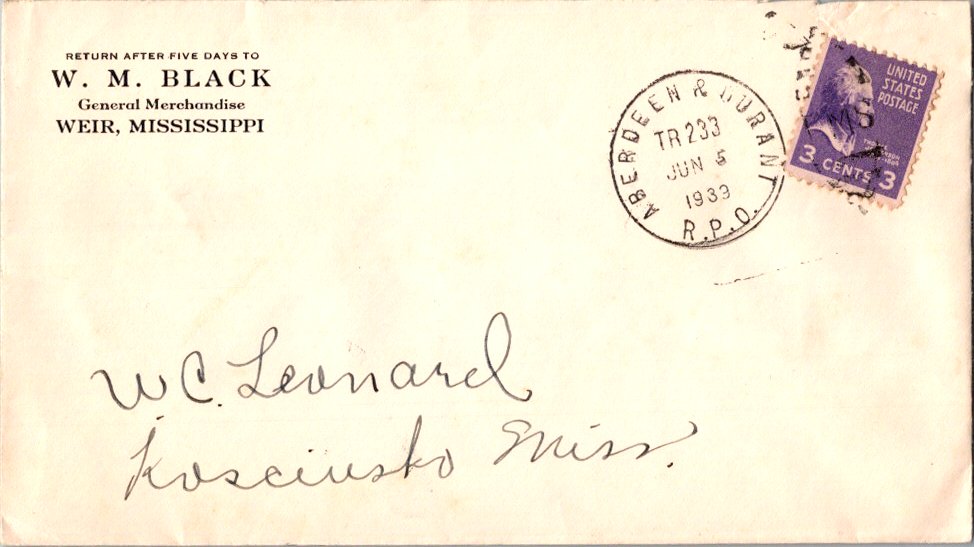 RETURN AFTER FIVE DAYS TO
W. M. BLACK
General Merchandise
WEIR, MISSISSIPPI
ABERDEEN & DURANT
TR 233
JUN 5
1939
R.P.O.
UNITED
STATES
POSTAGE
RMS
3 CENTS 3
W C. Leonard
Kosciusko Miss.